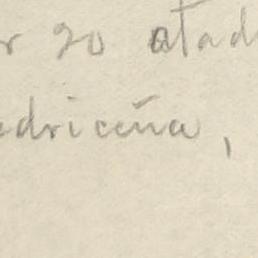 r 20 atad
edriceña,